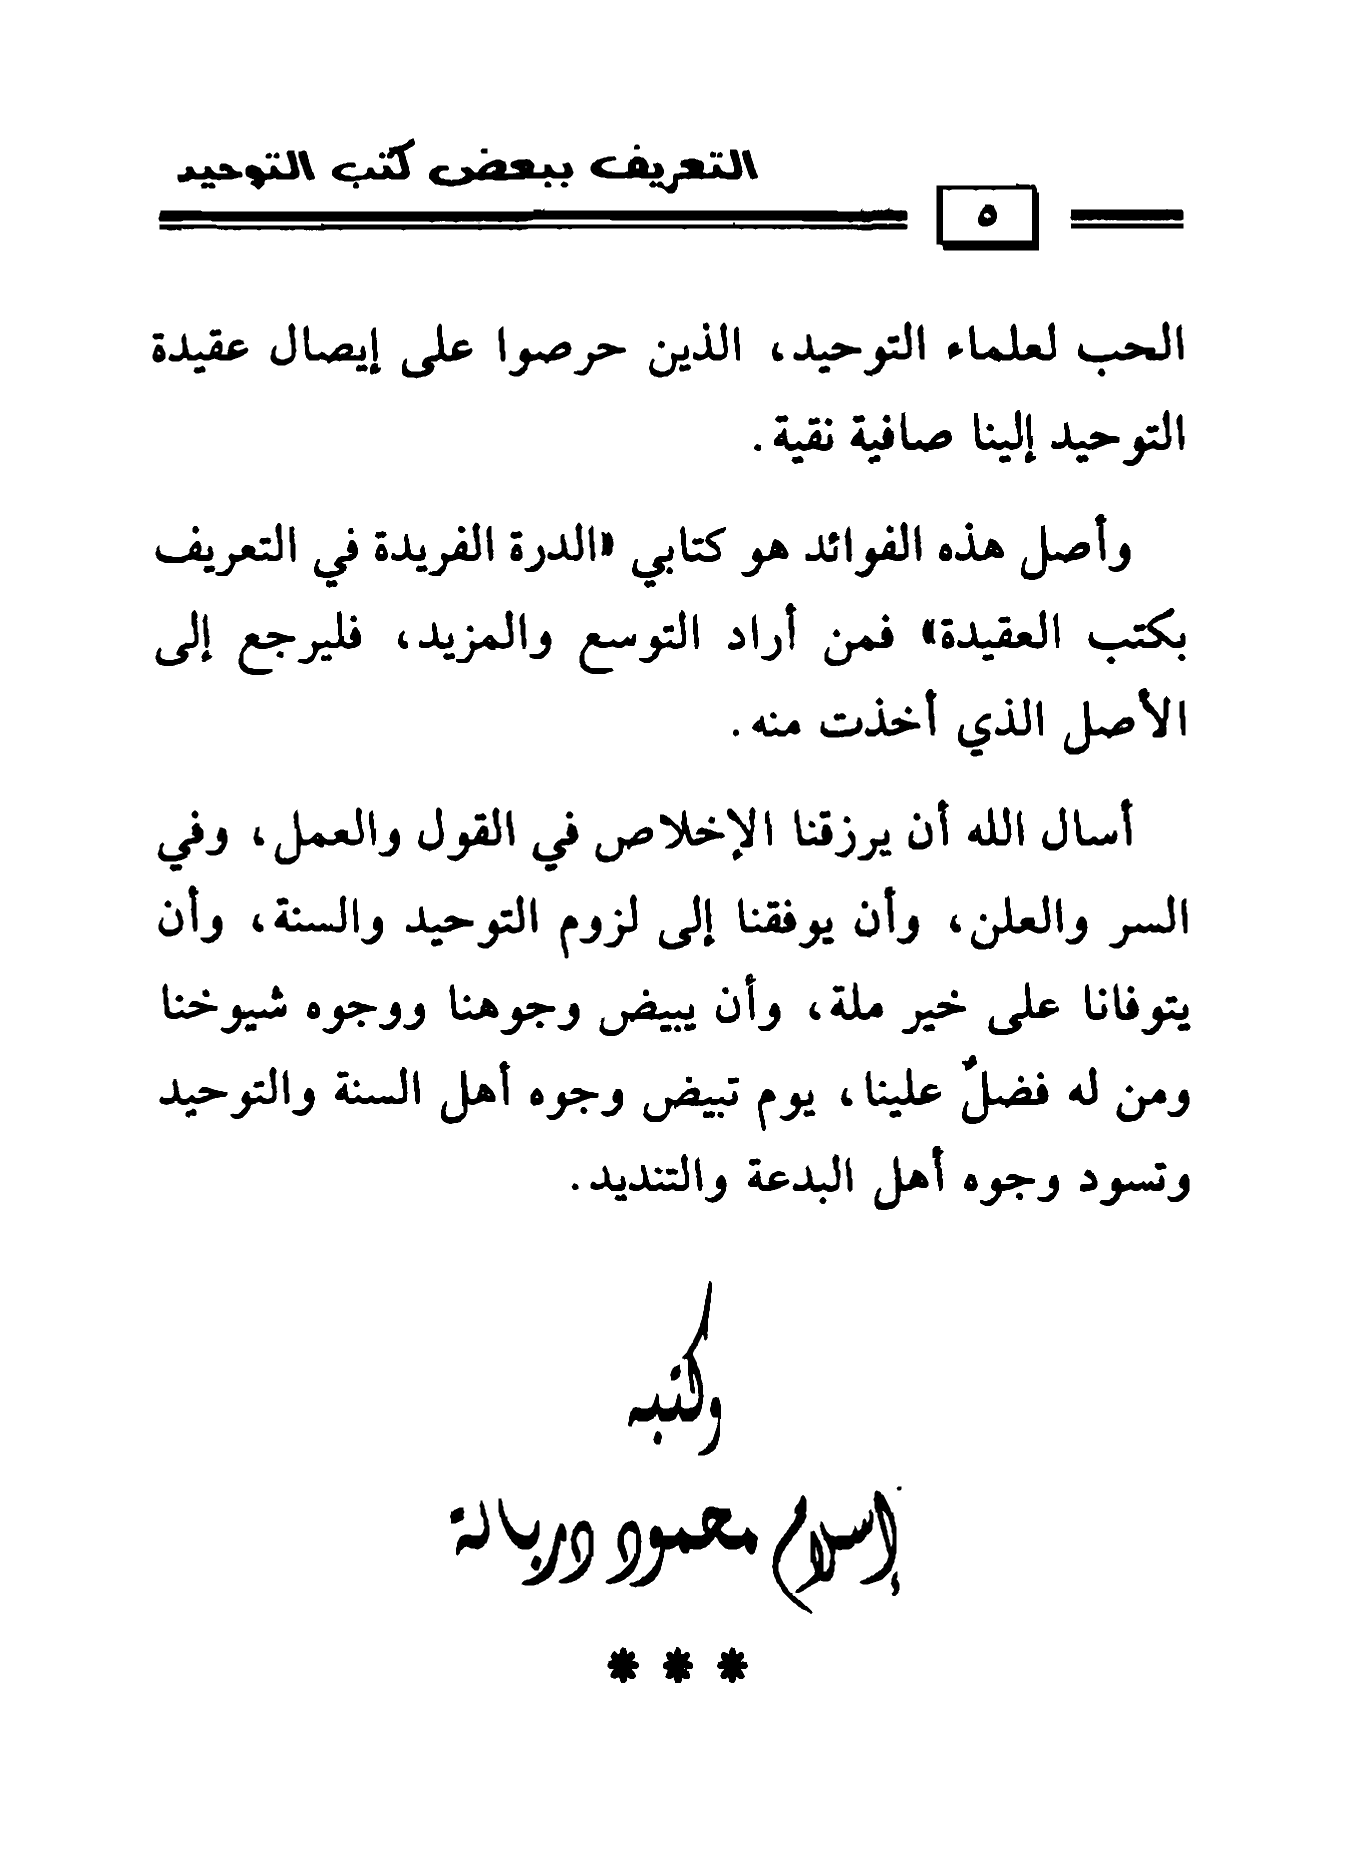 التعريف ببعض كتب التوحيد
٥
الحب لعلماء التوحيد، الذين حرصوا على إيصال عقيدة
التوحيد إلينا صافية نقية.
وأصل هذه الفوائد هو كتابي «الدرة الفريدة في التعريف
بكتب العقيدة» فمن أراد التوسع والمزيد، فليرجع إلى
الأصل الذي أخذت منه.
أسال الله أن يرزقنا الإخلاص في القول والعمل، وفي
السر والعلن، وأن يوفقنا إلى لزوم التوحيد والسنة، وأن
يتوفانا على خير ملة، وأن يبيض وجوهنا ووجوه شيوخنا
ومن له فضلٌ علينا، يوم تبيض وجوه أهل السنة والتوحيد
وتسود وجوه أهل البدعة والتنديد.
وكتبه
إسلام محمود دربالة
* * *